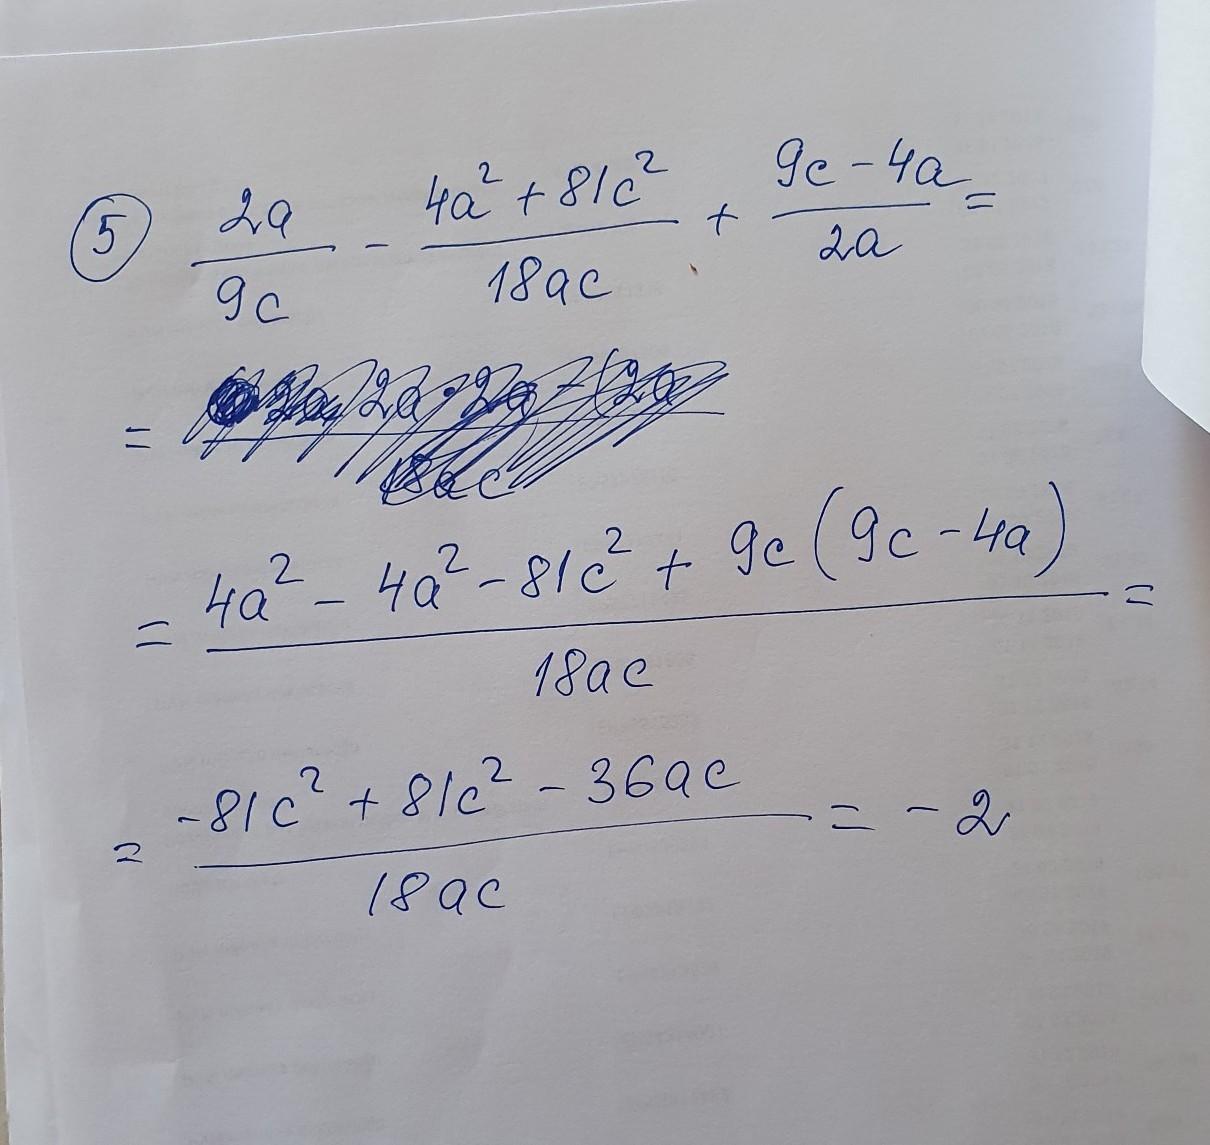 5 2a/9c - (4a² + 81c²)/18ac + (9c - 4a)/2a =
=
= (4a² - 4a² - 81c² + 9c(9c - 4a))/18ac =
= (-81c² + 81c² - 36ac)/18ac = -2